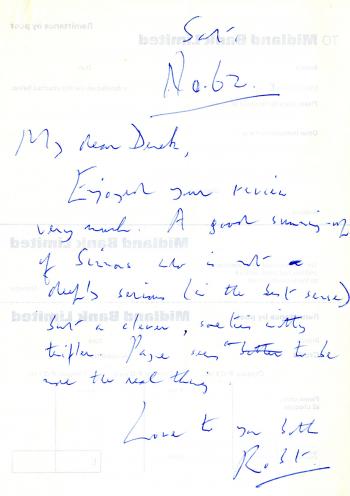 Sat.
No. 62.
My dear Derek,
Enjoyed your review
very much. A good summing-up
of Simon who is not a
deeply serious (in the best sense)
but a clever, sometimes witty
trifler. Page seems to be
more the real thing.
Love to you both
Robt.
Remittance by post
TO Midland Bank Limited
Midland Bank Limited
Midland Bank Limited